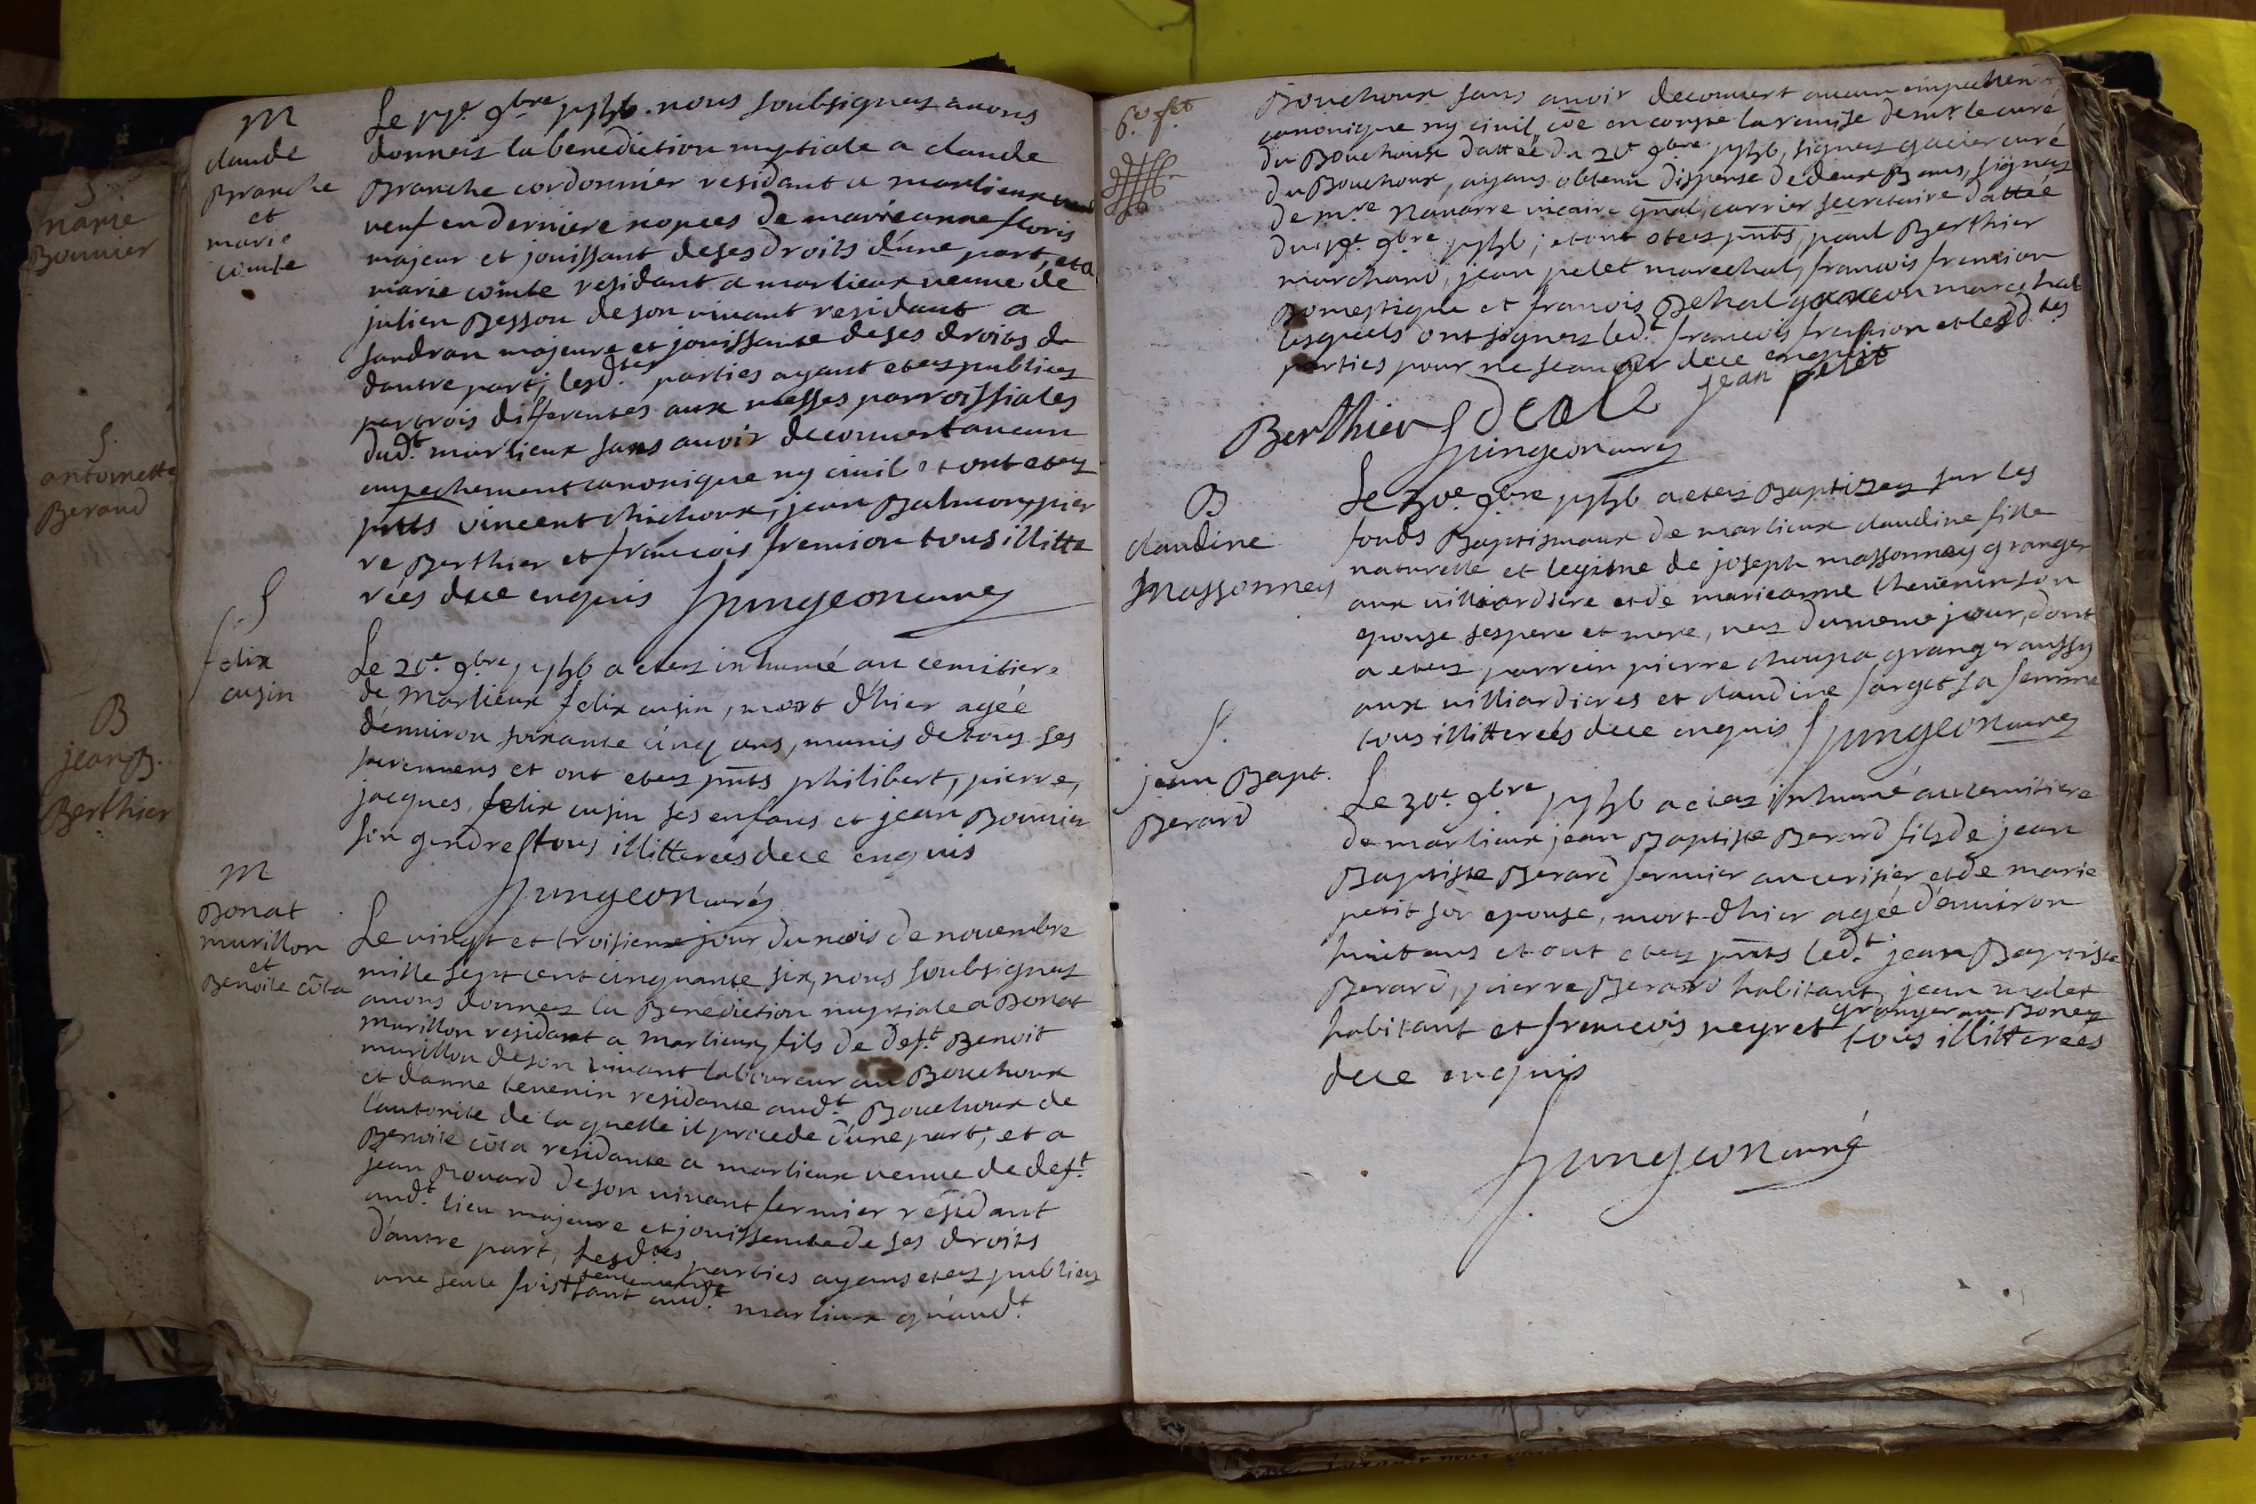 marie
Bounier
S.
antoinette
Beraud
B
jean B.
Berthier
M
claude
Branche
et
marie
comte
Le 9bre 1756. nous soubsignez avons
donnez la benediction nuptiale a claude
Branche cordonnier residant a marlieux
veuf en derniere nopces de marieanne floris
majeur et jouissant de ses droits d'une part, et a
marie comte residant a marlieux veuve de
julien Besson de son vivant residant a
sandran majeure et jouissante de ses droits de
dautre part; lesd.tes parties ayant etez publiez
par trois differentes aux messes parroissiales
dud.t marlieux sans avoir decouvert aucun
empechement canonique ny civil et ont etez
pnts vincent Michoux, jean Balmeon, pier
re Berthier et francois fremion tous illitte
rées de ce enquis Spingeon curez
S
felix
cusin
Le 20e 9bre 1756 a etez inhumé au cemitiere
de Marlieux felix cusin, mort d'hier agée
d'environ soixante cinq ans, munis de tous ses
sacremens et ont etez pnts philibert, pierre,
jacques, felix cusin ses enfans et jean Bounier
son gendre tous illitterées de ce enquis
Spingeon curéz
M
Donat
murillon
et
Benoite cota
Le vingt et troisieme jour du mois de novembre
mille sept cent cinquante six, nous soubsignez
avons donnez la Benediction nuptiale a Donat
murillon residant a marlieux, fils de deft. Benoit
murillon de son vivant laboureur au Bouchoux
et danne tevenin residante aud.t Bouchoux de
l'autorite de la quelle il procede d'une part, et a
Benoite cota residante a marlieux veuve de deft.
jean Rouard de son vivant fermier residant
aud.t lieu majeure et jouissente de ses droits
d'autre part, lesd.tes parties ayans etez publiez
une seule fois seulement tant aud.t marlieux qu'aud.t
Bouchoux sans avoir decouvert aucun empechem.t
canonique ny civil, coe en conste la remise de mr. le curé
du Bouchoux dattée du 20e 9bre 1756, signez gacier curé
du Bouchoux, ayans obtenu dispense de deux Bans, signez
de mre. Navarre vicaire gnal, carrier secretaire dattée
du 19e 9bre 1756; et ont etez pnts, paul Berthier
marchand, jean pelet marechal, francois fremion
Domestique et francois Dehal garcon marechal
lesquels ont signez led.t francois fremion et lesd.tes
parties pour ne scavoir de ce enquis
jean pelet
Berthier
Spingeon curez
B
claudine
Massonney
Le 30e 9bre 1756 a etez Baptizez sur les
fonds Baptismaux de marlieux claudine fille
naturelle et legitme de joseph massonney granger
aux villiardiere et de marieanne thevenin son
epouse ses pere et mere, nez du meme jour, dont
a etez parrein pierre choupa granger aussy
aux villiardieres et claudine sarget sa femme
tous illitterées de ce enquis Spingeon curez
S.
jean Bapt.
Berard
Le 30e 9bre 1756 a etez inhumé au cemitiere
de marlieux jean Baptiste Berard fils de jean
Baptiste Berard fermier au cerisier et de marie
petit son epouse, mort d'hier agée d'environ
huit ans et ont etez pnts led.t jean Baptiste
Berard, pierre Berard habitant, jean malet
habitant et francois peyret granger au Bonez tous illitterées
de ce enquis
Spingeon curé